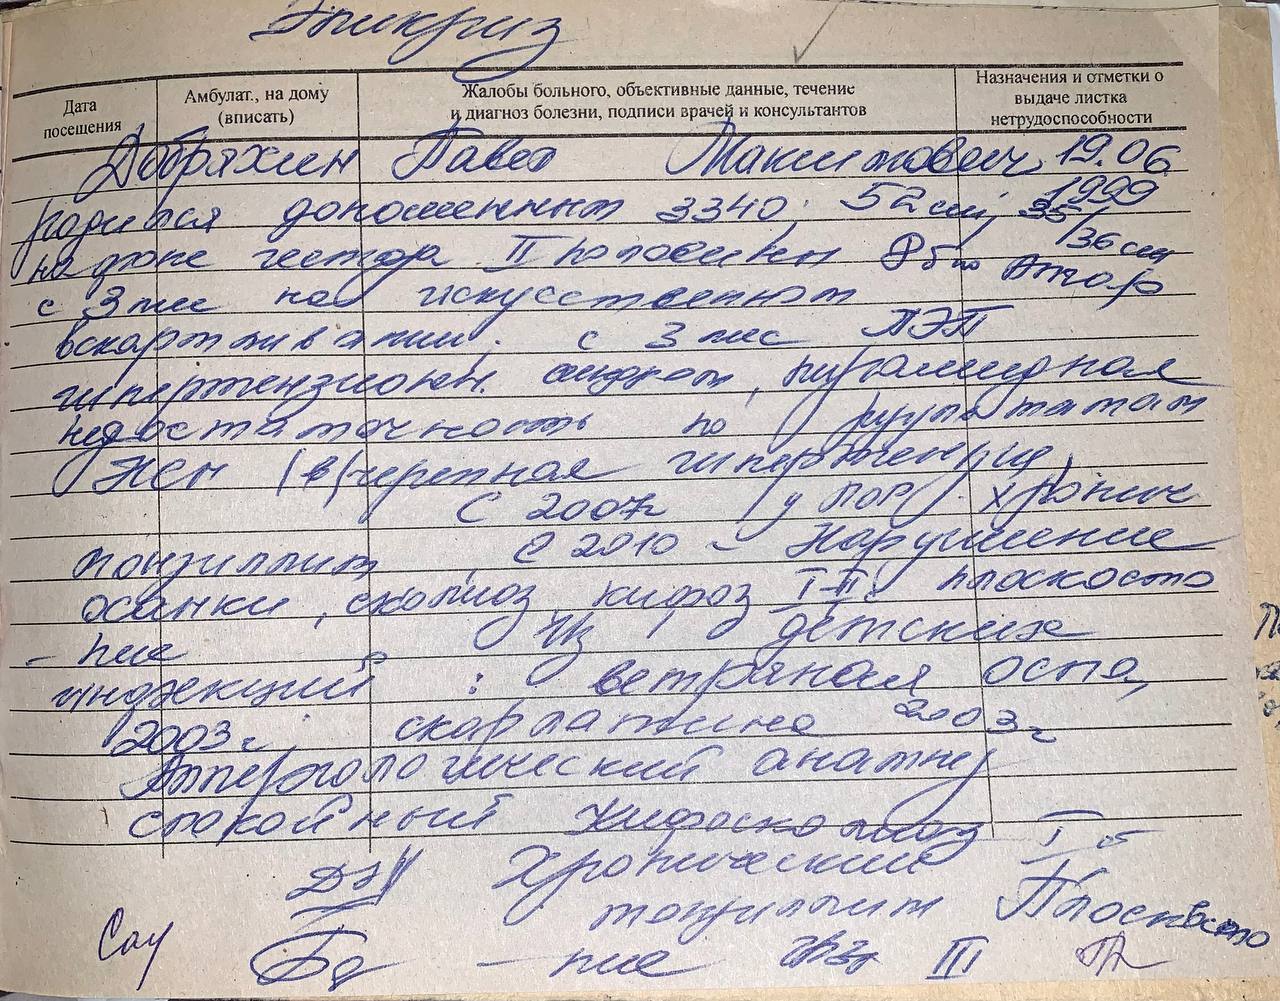 Эпикриз
Дата посещения
Амбулат., на дому (вписать)
Жалобы больного, объективные данные, течение и диагноз болезни, подписи врачей и консультантов
Назначения и отметки о выдаче листка нетрудоспособности
Добряхин Павел Максимович 19.06
1999
родился доношенным 3340, 52 см, 35/36 см
на фоне гестоза II половины 8 б по Апгар
с 3 мес на искусственном
вскармливании, с 3 мес ПЭП
гипертензион. синдром, пирамидная
недостаточность по результатам
НСГ (в/черепная гипертензия)
С 2007г у ЛОР хронич
тонзиллит, С 2010 - Нарушение
осанки, сколиоз, кифоз I-II, плоскосто
-пие Из детских
инфекций : ветряная оспа,
2003г, скарлатина 2003г
Аллергологический анамнез
спокойный Кифосколиоз I б
Хронический
тонзиллит Плоскосто
-пие III